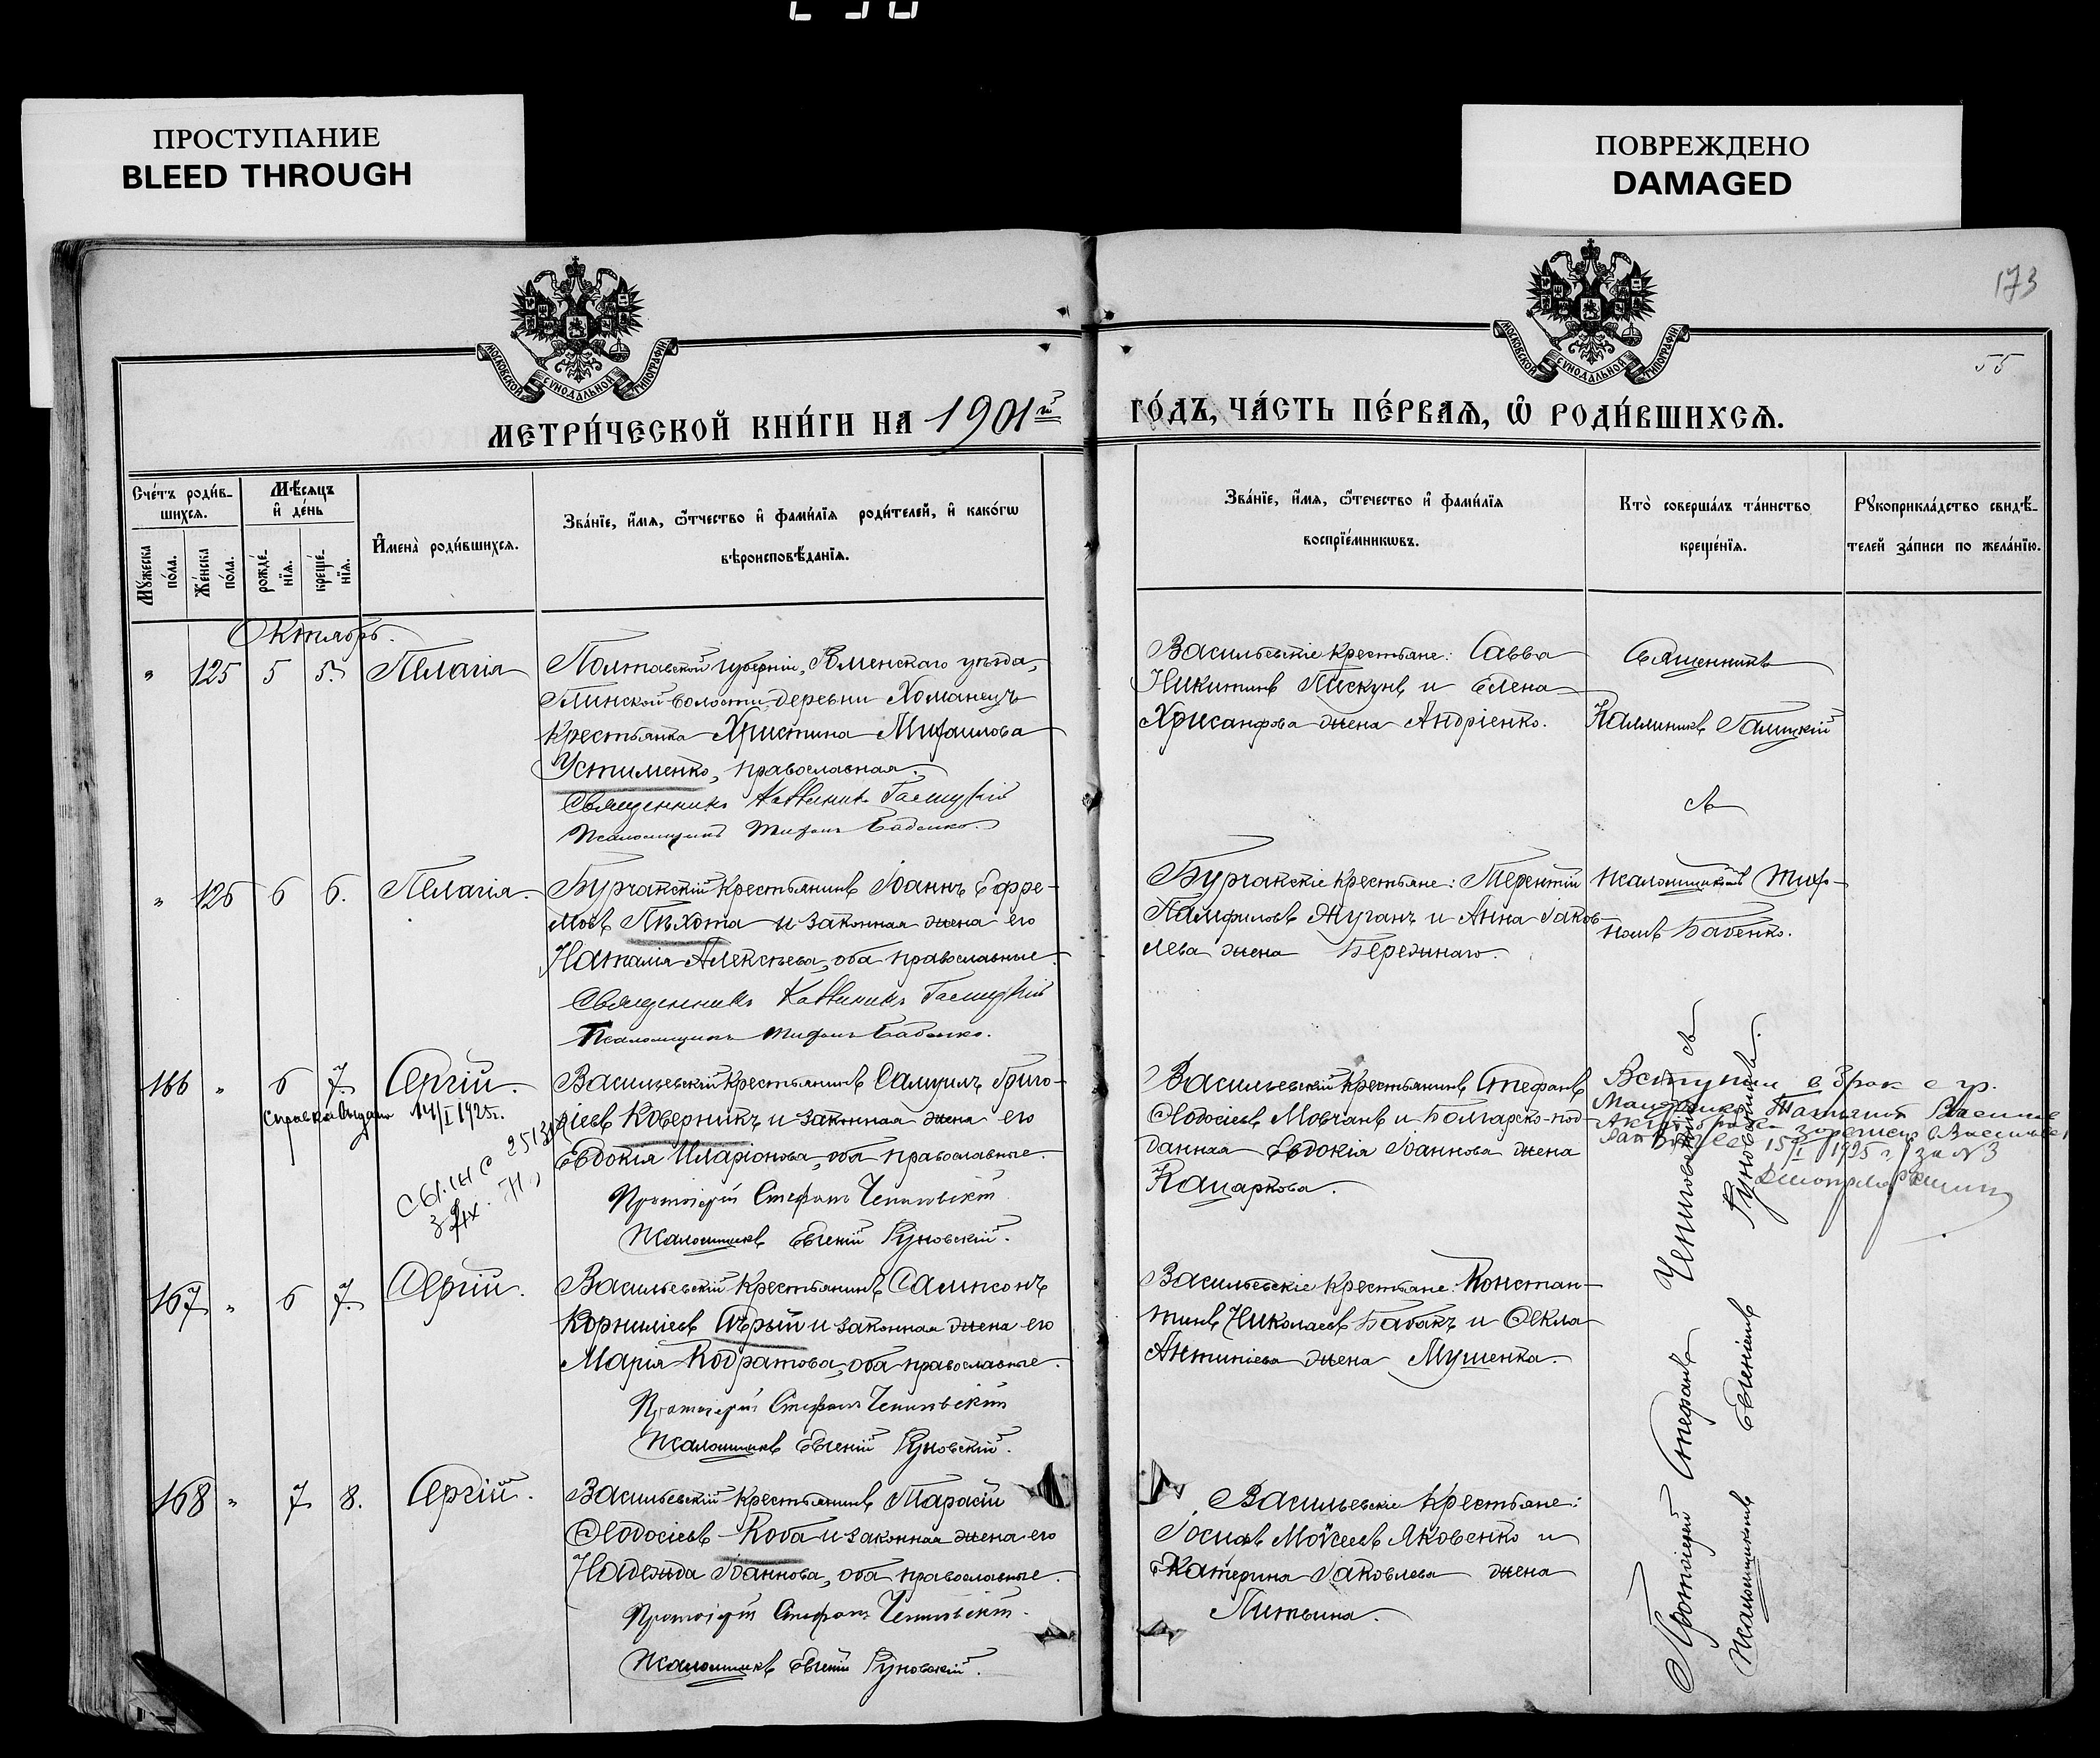 ПРОСТУПАНИЕ
BLEED THROUGH
ПОВРЕЖДЕНО
DAMAGED
173
55
МОСКОВСКОЙ СѴНОДАЛЬНОЙ ТИПОГРАФІИ
МОСКОВСКОЙ СѴНОДАЛЬНОЙ ТИПОГРАФІИ
МЕТРИ́ЧЕСКОЙ КНИ́ГИ НА 1901й ГО́ДЪ, ЧА́СТЬ ПЕ́РВАЯ, Ѡ҆ РОДИ́ВШИХСЯ.
Сче́тъ роди́в-
шихся.
Мѣ́сяцъ
и҆ де́нь
Му́жеска
по́ла.
Же́нска
по́ла.
рожде́-
нїя.
креще́-
нїя.
И҆мена̀ роди́вшихся.
Зва́нїе, и҆́мя, ѻ҆́тчество и҆ фами́лїя роди́телей, и҆ како́гѡ
вѣроисповѣ́данїя.
Зва́нїе, и҆́мя, ѻ҆те́чество и҆ фами́лїя
воспрїе́мникѡвъ.
Кто̀ соверша́лъ та́инство
креще́нїя.
Рукоприкла́дство свидѣ́-
телей за́писи по жела́нїю.
Октябрь.
" 125 5 5. Пелагія
Полтавской губерніи, Роменскаго уѣзда,
Глинской волости деревни Хоманецъ
крестьянка Христина Михаилова
Устименко, православная.
Священникъ Каллиникъ Галицкій
Псаломщикъ Тифонъ Бабенко.
Васильевскіе крестьяне: Савва
Никитинъ Пискунъ и Елена
Хрисанфова жена Андріенко.
Священникъ
Каллиникъ Галицкій
съ
" 126 6 6. Пелагія.
Бурчакскій крестьянинъ Іоаннъ Ефре-
мовъ Пѣхота и законная жена его
Наталія Алексѣева, оба православные.
Священникъ Каллиникъ Галицкій
Псаломщикъ Тифонъ Бабенко.
Бурчакскіе крестьяне: Терентій
Памфиловъ Жуганъ и Анна Іаков-
лева жена Бережнаго.
псаломщикомъ Тифо-
номъ Бабенко.
166 " 6 7. Сергій.
Справка выдана 14/I 1925г.
Васильевскій крестьянинъ Самуилъ Григо-
ріевъ Коверникъ и законная жена его
Евдокія Иларіонова, оба православные.
Протоіерей Стефанъ Чепиговскій
Псаломщикъ Евгеній Руновскій.
Васильевскій крестьянинъ Стефанъ
Ѳеодосіевъ Мовчанъ и Болгарско-под-
данная Евдокія Іоаннова жена
Кацаркова.
Вступил в брак с гр.
Татьяной
15/I 1925 г. за № 3
167 " 6 7. Сергій.
Васильевскій крестьянинъ Сампсонъ
Корниліевъ Сѣрый и законная жена его
Марія Кодратова, оба православные.
Протоіерей Стефанъ Чепиговскій
Псаломщикъ Евгеній Руновскій.
Васильевскіе крестьяне: Констан-
тинъ Николаевъ Бабакъ и Ѳекла
Антипіева жена Мушенка.
168 " 7 8. Сергій.
Васильевскій крестьянинъ Тарасій
Ѳеодосіевъ Коба и законная жена его
Надежда Іоаннова, оба православные.
Протоіерей Стефанъ Чепиговскій.
Псаломщикъ Евгеній Руновскій.
Васильевскіе крестьяне:
Іосифъ Моѵсеевъ Яковенко и
Екатерина Іаковлева жена
Литвина.
Протоіерей Стефанъ Чепиговскій съ
Псаломщикомъ Евгеніемъ Руновскимъ.